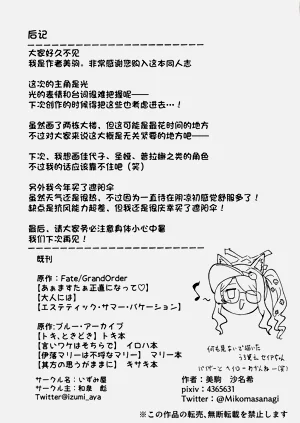 后记
大家好久不见
我是作者美驹。非常感谢您购入这本同人志
这次的主角是光
光的表情和台词很难把握呢——
下次创作的时候得把这些也考虑进去…！
虽然画了两栋大楼，但这可能是最花时间的地方
不过对大家来说这大概是无关紧要的地方吧——
下次、我想画佳代子、圣娅、普拉娜之类的角色
不过我的话应该靠不住吧（笑）
另外我今年买了遮阳伞
虽然天气还是很热，不过因为一直待在阴凉初感觉舒服多了！
缺点是抗风能力超差、但我还是很庆幸买了遮阳伞
最后，请大家务必注意身体小心中暑
我们下次再见！
既刊
原作：Fate/GrandOrder
【あぁますたぁ正直になって♡】
【大人には】
【エステティック・サマー・バケーション】
原作:ブルー・アーカイブ
【トキ、ときどき】トキ本
【言いワケはそちらで】 イロハ本
【伊落マリーは不埒なマリー】 マリー本
【其方の思うがままに】 キサキ本
サークル名：いずみ屋
サークル主：和泉 彪
Twitter@izumi_aya
何も見ないで描いた
うろ覚えセイアちゃん
作者：美駒 沙名希
pixiv：4365631
Twitter：@Mikomasanagi
※この作品の転売、無断転載を禁止します